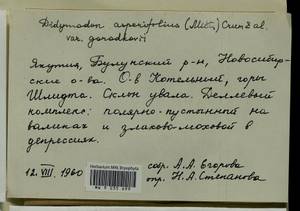 Didymodon asperifolius (Mitt.) Crum & al.
var. gorodkovii
Якутия, Булунский р-н, Новосибир-
ские о-ва. О-в Котельный, горы
Шмидта. Склон увала. Деллевый
комплекс: полярно-пустынный на
валиках и злаково-моховой в
депрессиях.
12. VIII. 1960
Herbarium MW, Bryophyta
собр. А.А. Егорова
опр. Н.А. Степанова